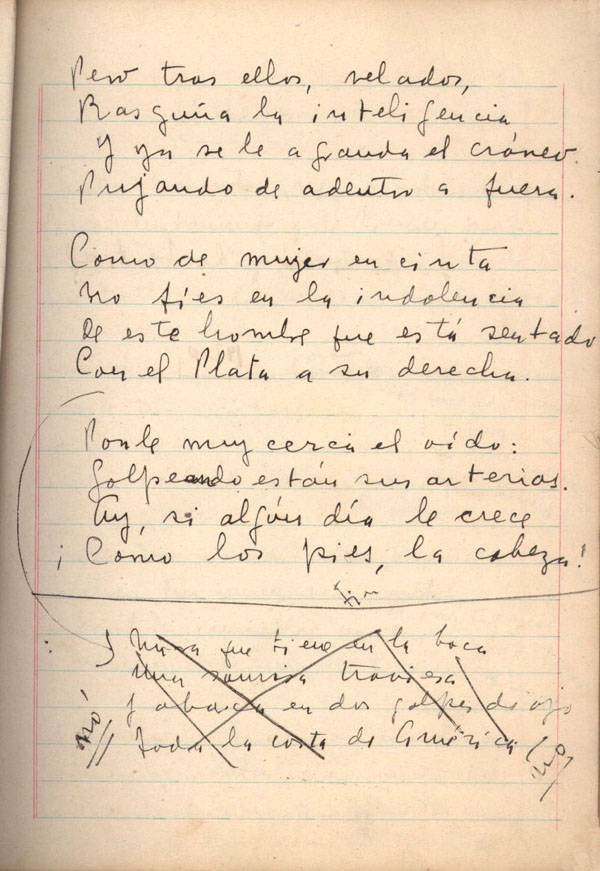 Pero tras ellos, velados,
Rasguña la inteligencia
Y ya se le agranda el cráneo.
Pujando de adentro a fuera.
Como de mujer en cinta
No fíes en la indolencia
De este hombre que está sentado
Con el Plata a su derecha.
Ponle muy cerca el oído:
Golpeando están sus arterias.
Ay, si algún día le crece
¡Como los pies, la cabeza!
Fin
Mira que tiene en la boca
una sonrisa traviesa
Y abarca en dos golpes de ojo
toda la costa de América
nó
nó